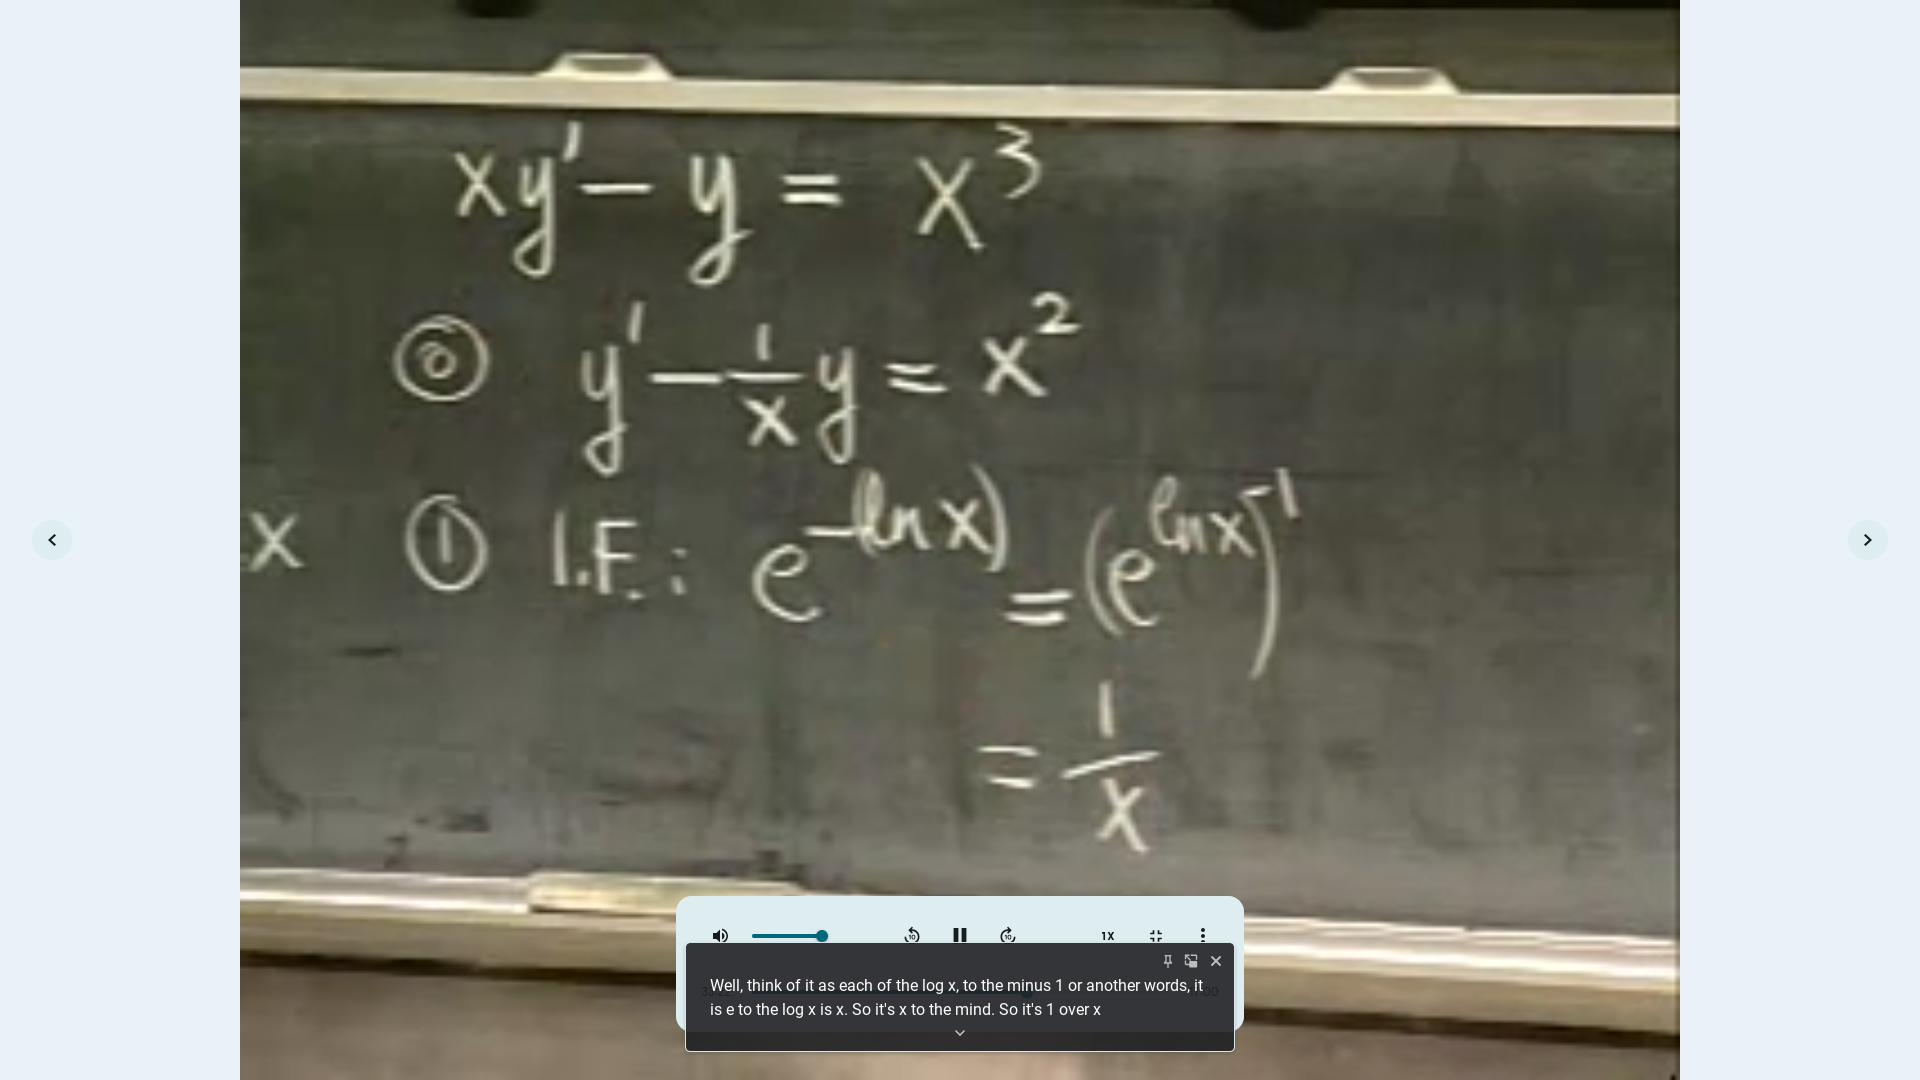 xy' - y = x³
⓪ y' - 1/x y = x²
x ① I.F.: e^(-ln x) = (e^(ln x))^-1
= 1/x
1X
Well, think of it as each of the log x, to the minus 1 or another words, it
is e to the log x is x. So it's x to the mind. So it's 1 over x